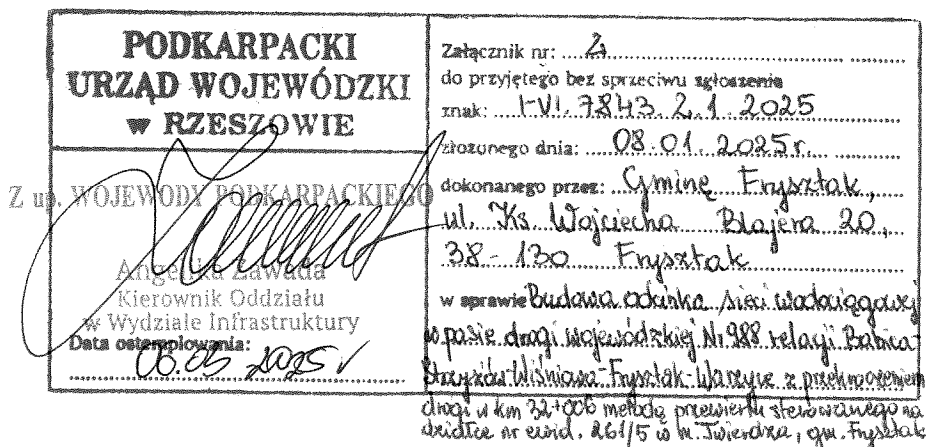 PODKARPACKI
URZĄD WOJEWÓDZKI
w RZESZOWIE
Z up. WOJEWODY PODKARPACKIEGO
Angelika Zawada
Kierownik Oddziału
w Wydziale Infrastruktury
Data ostemplowania:
06.03.2025
Załącznik nr: 2
do przyjętego bez sprzeciwu zgłoszenia
znak: I-VI.7843.2.1.2025
złożonego dnia: 08.01.2025r.
dokonanego przez: Gminę Frysztak,
ul. Ks. Wojciecha Blajera 20,
38-130 Frysztak
w sprawie Budowa odcinka sieci wodociągowej
w pasie drogi wojewódzkiej Nr 988 relacji Babica-
Strzyżów-Wiśniowa-Frysztak-Warzyce z przekroczeniem
drogi w km 32+006 metodą przewiertu sterowanego na
działce nr ewid. 261/5 w m. Twierdza, gm. Frysztak